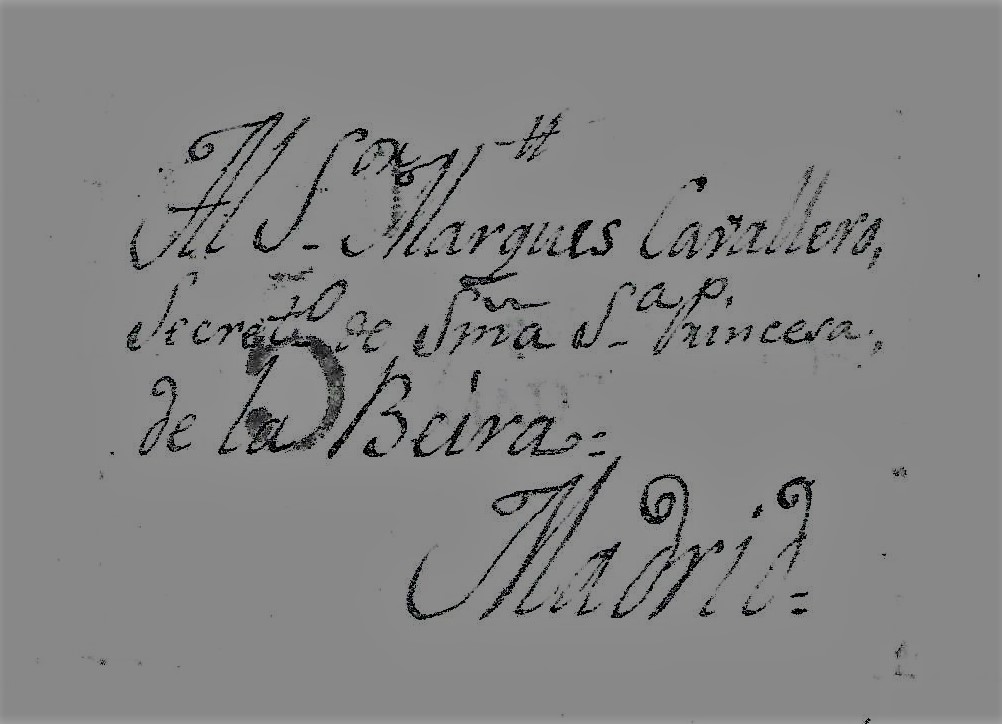 Al S.or Marques Cavallero,
Secret.o de Sma S.a P. Princesa,
de la Beira=
Madrid=